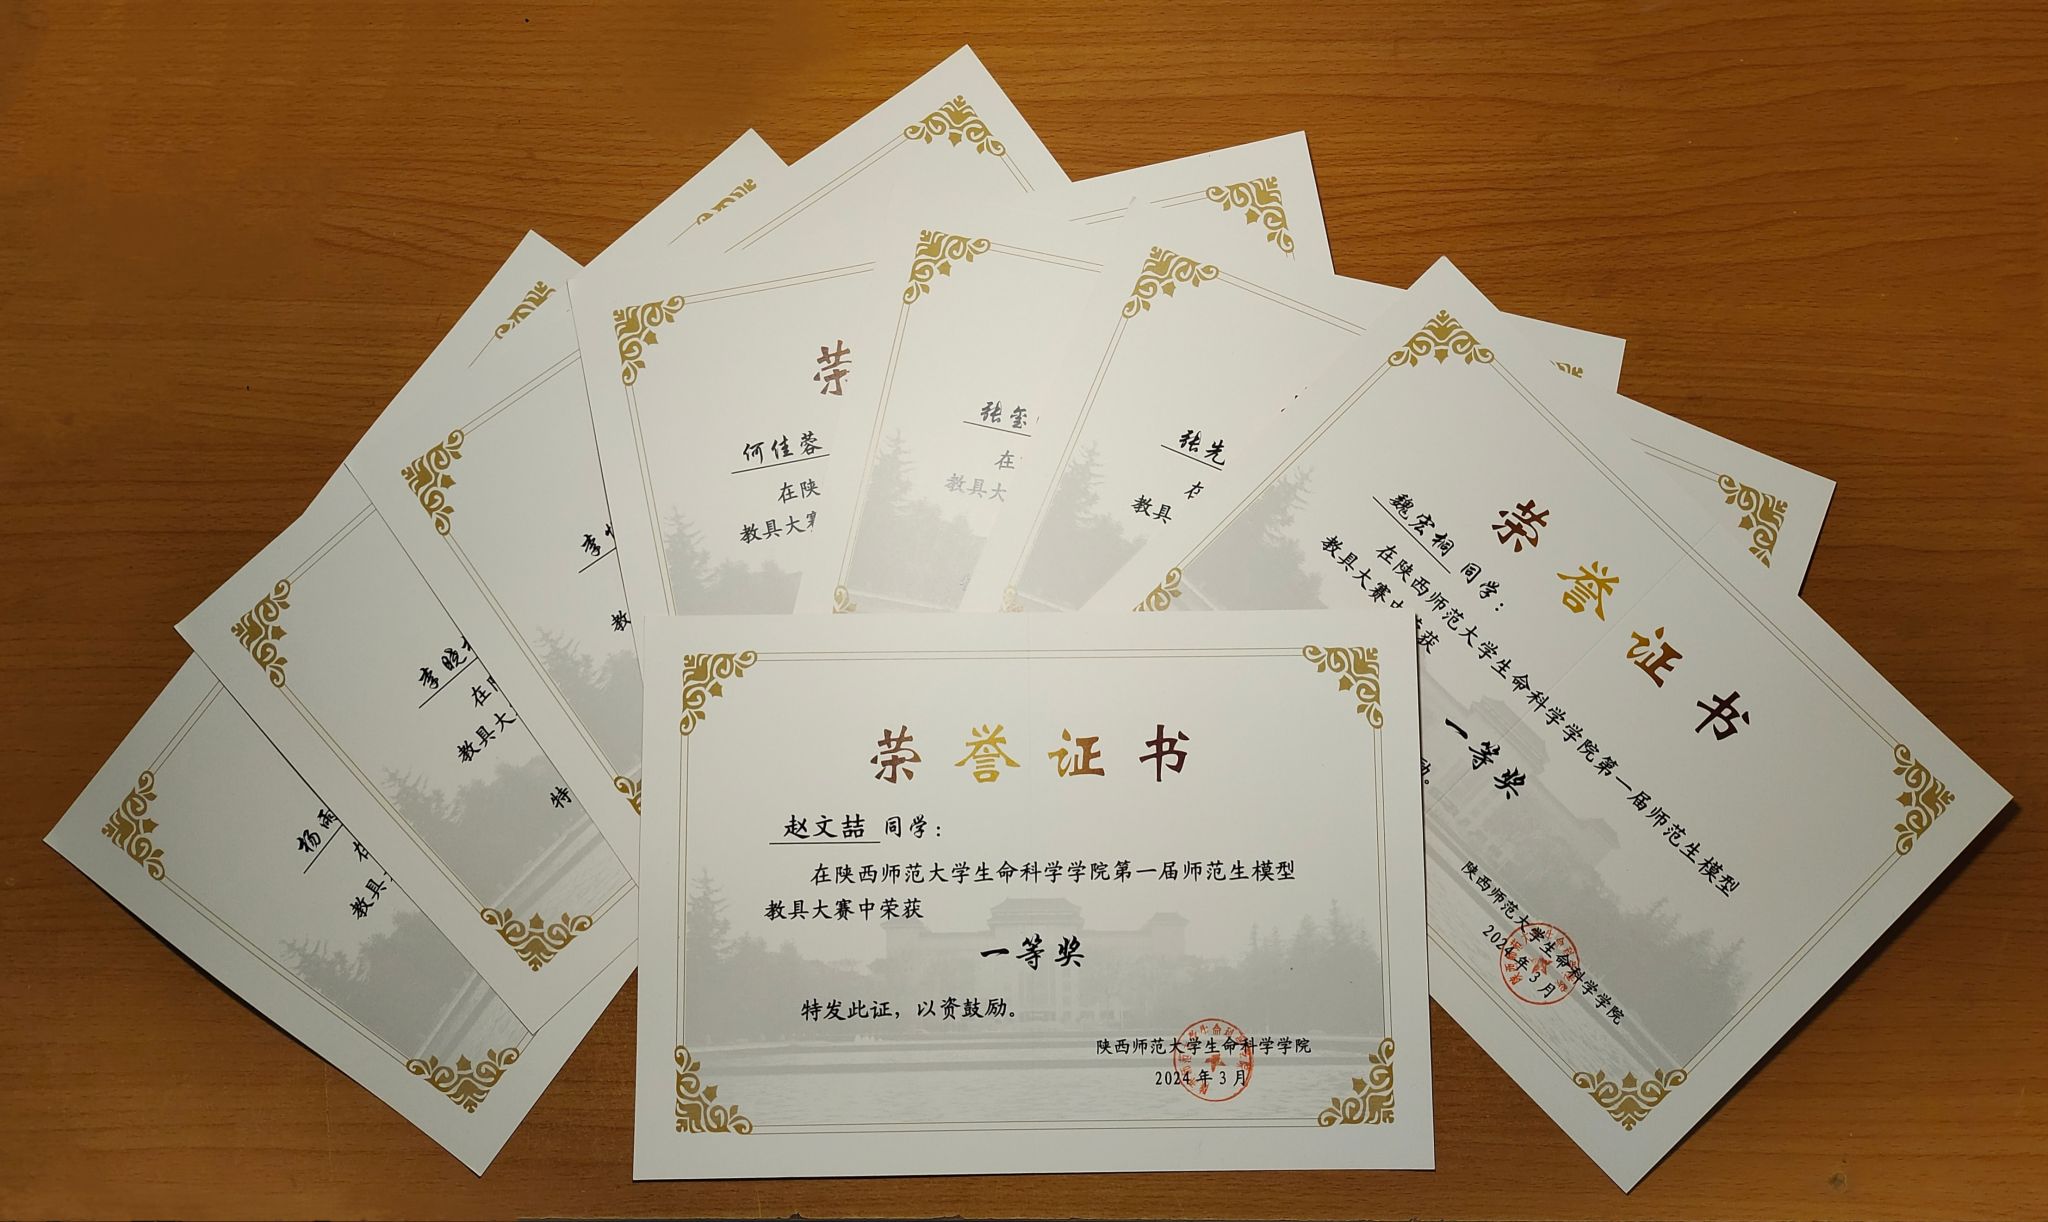 杨雨
教具
李晓
教具大
特
李
教
荣
何佳蓉
在陕
教具大赛
张玺
在
教具大
张先
教具
荣誉证书
魏宏桐 同学：
在陕西师范大学生命科学学院第一届师范生模型
教具大赛中荣获
一等奖
励。
陕西师范大学生命科学学院
2024年3月
荣誉证书
赵文喆 同学：
在陕西师范大学生命科学学院第一届师范生模型
教具大赛中荣获
一等奖
特发此证，以资鼓励。
陕西师范大学生命科学学院
2024年3月